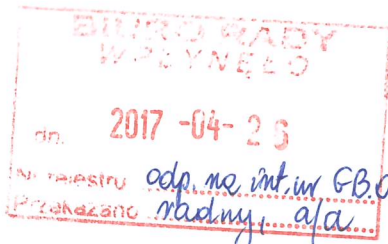 BIURO RADY
WPŁYNĘŁO
dn. 2017 -04- 2
Nr rejestru odp. na int. nr GB.
Przekazano radny, a/a